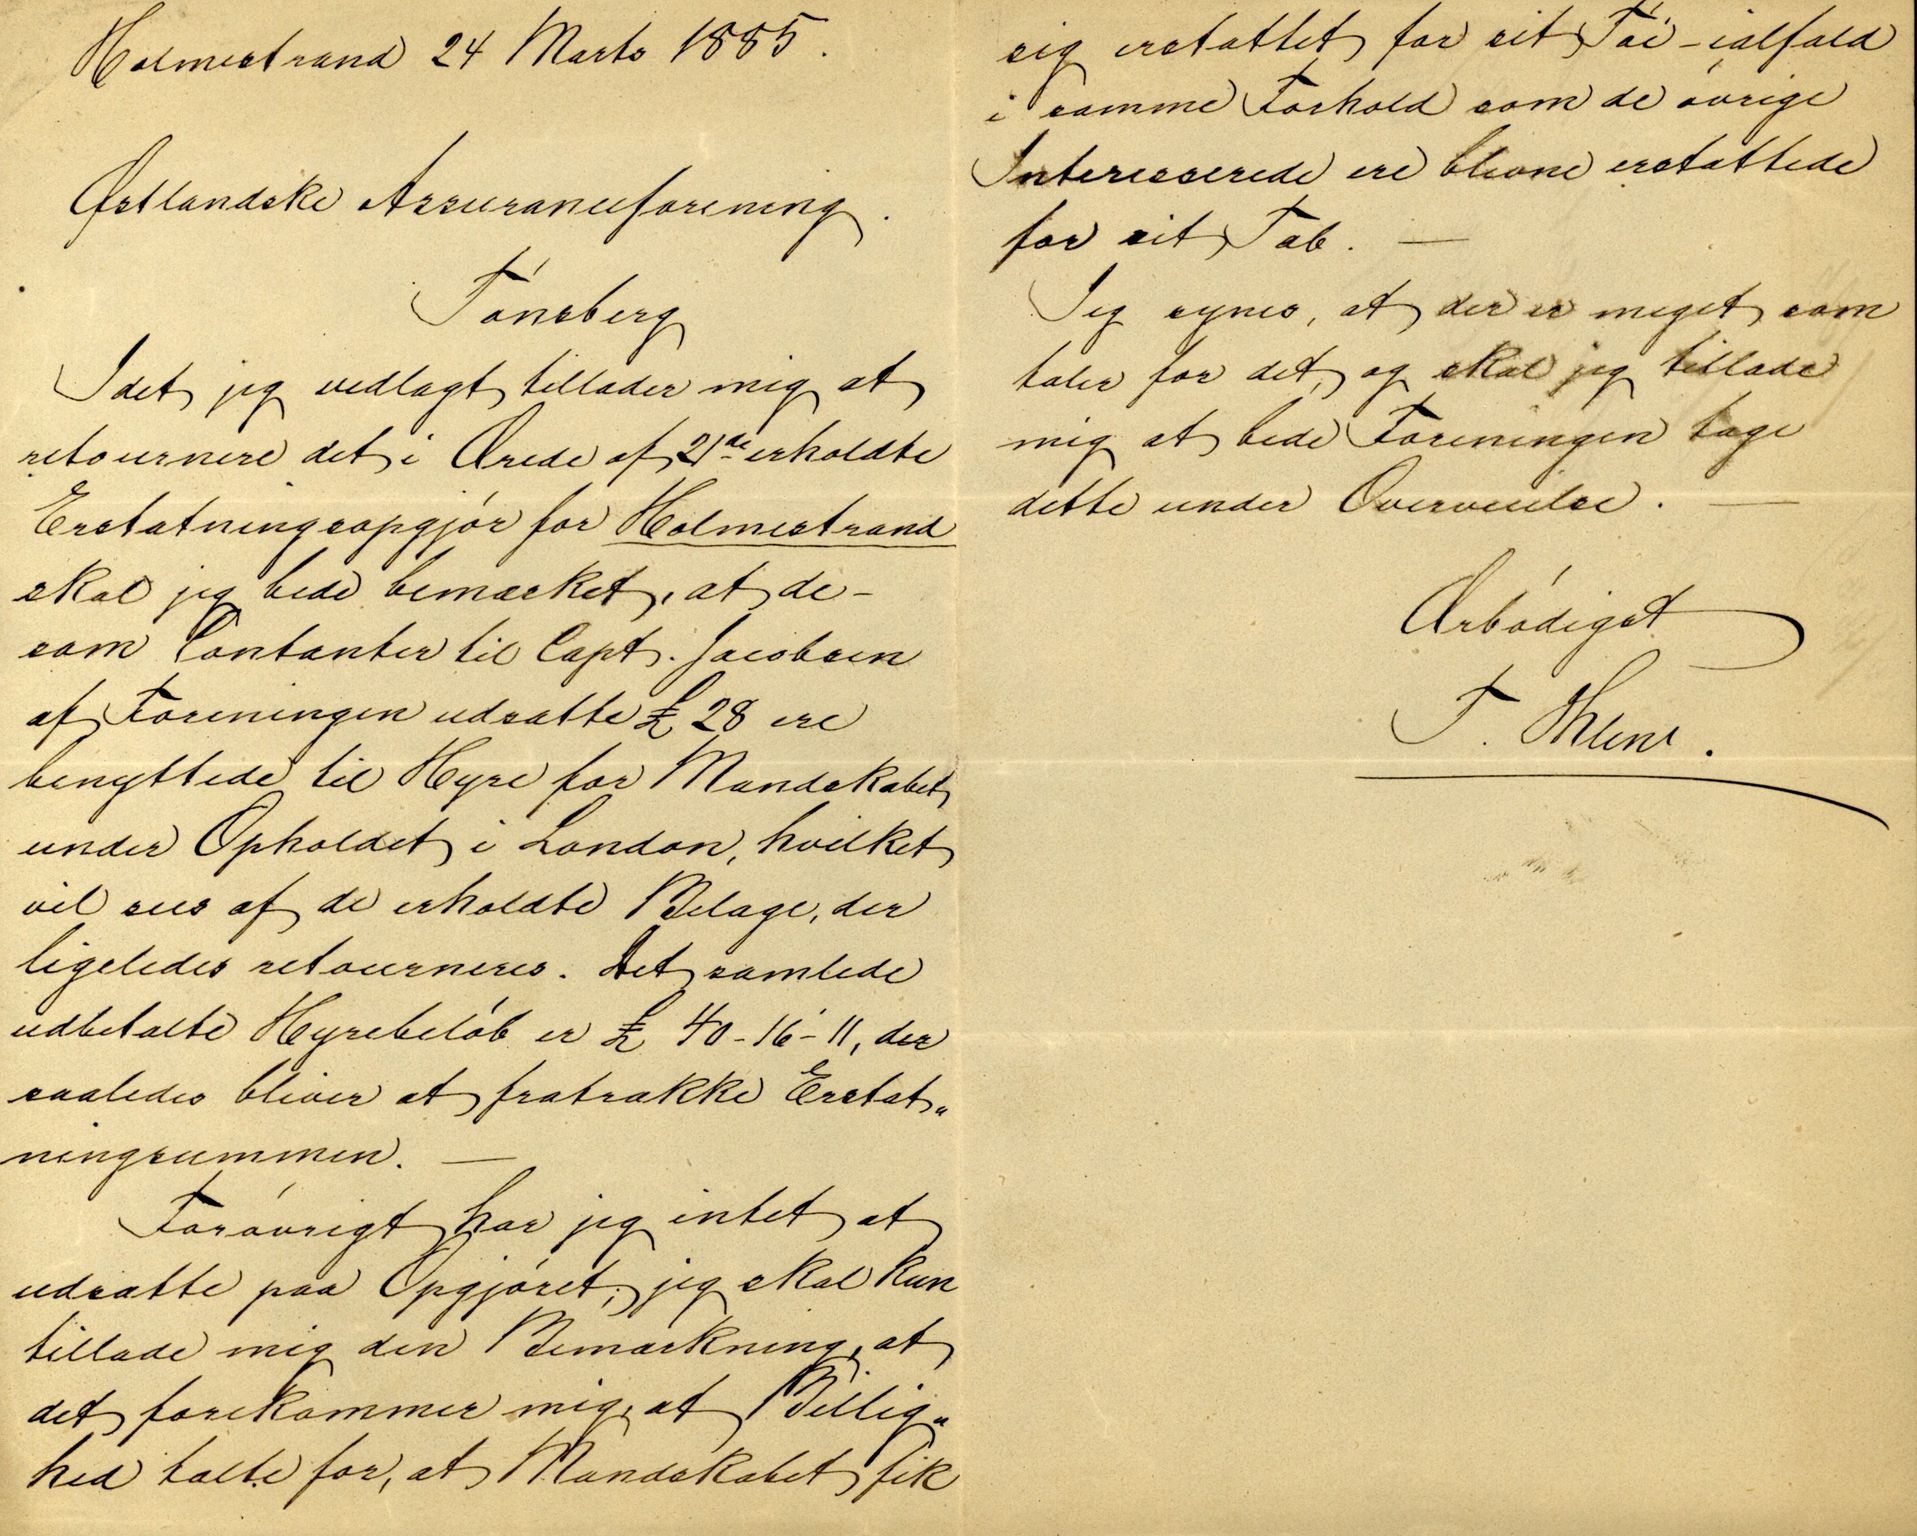 Holmestrand 24 Marts 1885.
Østlandske Assuranceforening.
Tönsberg
Idet jeg vedlagt tillader mig at
retournere det i Ærede af 21de erholdte
Erstatningsopgjør for Holmestrand
skal jeg bede bemærket, at de-
som Contanter til Capt. Jacobsen
af Foreningen udsatte £ 28 ere
benyttede til Hyre for Mandskabet
under Opholdet i London, hvilket
vil sees af de erholdte Bilage, der
ligeledes retourneres. Det samlede
udbetalte Hyrebeløb er £ 40-16-11, der
saaledes bliver at fratrække Erstat„
ningssummen. —
Forøvrigt har jeg intet at
udsætte paa Opgjøret; jeg skal kun
tillade mig den Bemærkning, at
det forekommer mig, at Billig„
hed talte for, at Mandskabet fik
sig erstattet for sit Töi - ialfald
i samme Forhold som de øvrige
Interesserede ere blevne erstattede
for sit Tab. —
Jeg synes, at der er meget som
taler for det, og skal jeg tillade
mig at bede Foreningen tage
dette under Overveielse. —
Ærbødigst
T.